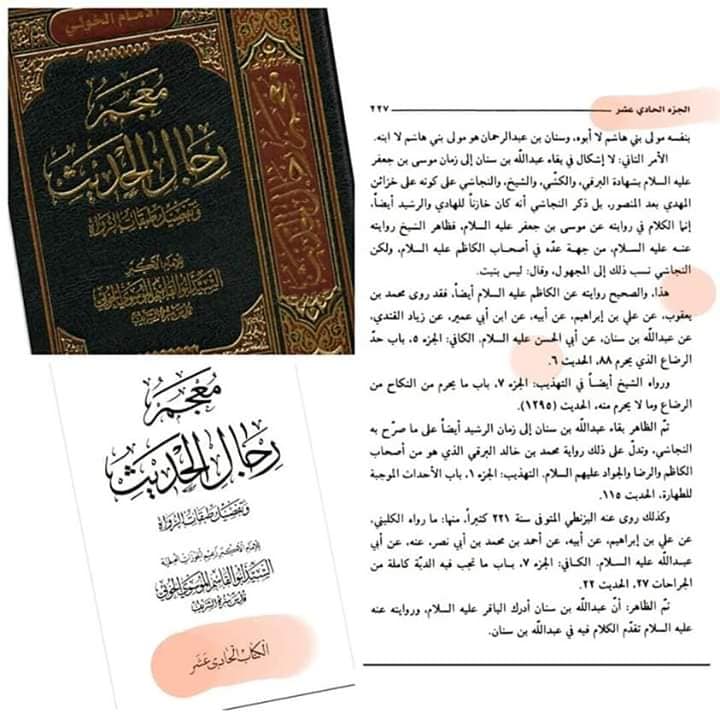 الإمام الخوئي
معجم
رجال الحديث
وتفصيل طبقات الرواة
للإمام الأكبر
السيد أبو القاسم الموسوي الخوئي
قدس سره الشريف
معجم رجال الحديث
معجم
رجال الحديث
وتفصيل طبقات الرواة
للإمام الأكبر زعيم الحوزات العلمية
السيد أبو القاسم الموسوي الخوئي
قدس سره الشريف
الكتاب الحادي عشر
الجزء الحادي عشر ٢٢٧
بنفسه مولى بني هاشم لا أبوه، وسنان بن عبدالرحمان هو مولى بني هاشم لا ابنه.
الأمر الثاني: لا اشكال في بقاء عبداللّه بن سنان إلى زمان موسى بن جعفر
عليه السلام بشهادة البرقي، والكشّي، والشيخ، والنجاشي على كونه على خزائن
المهدي بعد المنصور، بل ذكر النجاشي أنه كان خازناً للهادي والرشيد أيضاً،
إنما الكلام في روايته عن موسى بن جعفر عليه السلام، فظاهر الشيخ روايته
عنه عليه السلام، من جهة عدّه في أصحاب الكاظم عليه السلام، ولكن
النجاشي نسب ذلك إلى المجهول، وقال: ليس بثبت.
هذا، والصحيح روايته عن الكاظم عليه السلام أيضاً، فقد روى محمد بن
يعقوب، عن علي بن إبراهيم، عن أبيه، عن ابن أبي عمير، عن زياد القندي،
عن عبداللّه بن سنان، عن أبي الحسن عليه السلام. الكافي: الجزء ٥، باب حدّ
الرضاع الذي يحرم ٨٨، الحديث ٦.
ورواه الشيخ أيضاً في التهذيب: الجزء ٧، باب ما يحرم من النكاح من
الرضاع وما لا يحرم منه، الحديث (١٢٩٥).
ثمّ الظاهر بقاء عبداللّه بن سنان إلى زمان الرشيد أيضاً على ما صرّح به
النجاشي، وتدلّ على ذلك رواية محمد بن خالد البرقي الذي هو من أصحاب
الكاظم والرضا والجواد عليهم السلام. التهذيب: الجزء ١، باب الأحداث الموجبة
للطهارة، الحديث ١١٥.
وكذلك روى عنه البزنطي المتوفى سنة ٢٢١ كثيراً، منها: ما رواه الكليني،
عن علي بن إبراهيم، عن أبيه، عن أحمد بن محمد بن أبي نصر، عنه، عن أبي
عبداللّه عليه السلام. الكافي: الجزء ٧، باب ما تجب فيه الديّة كاملة من
الجراحات ٢٧، الحديث ٢٢.
ثمّ الظاهر: أنّ عبداللّه بن سنان أدرك الباقر عليه السلام، وروايته عنه
عليه السلام تقدّم الكلام فيه في عبداللّه بن سنان.